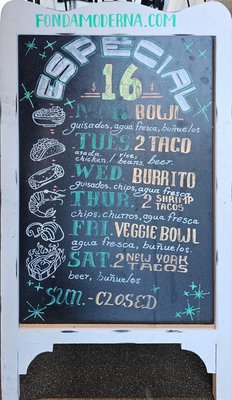 FONDAMODERNA.COM
ESPECIAL
$16
MON. BOWL
guisados, agua fresca, buñuelos
TUES. 2 TACO
asada / rice,
chicken / beans, beer
WED. BURRITO
guisados, chips, agua fresca
THUR. 2 SHRIMP
TACOS
chips, churros, agua fresca
FRI. VEGGIE BOWL
agua fresca, buñuelos.
SAT. 2 NEW YORK
TACOS
beer, buñuelos
SUN. - CLOSED